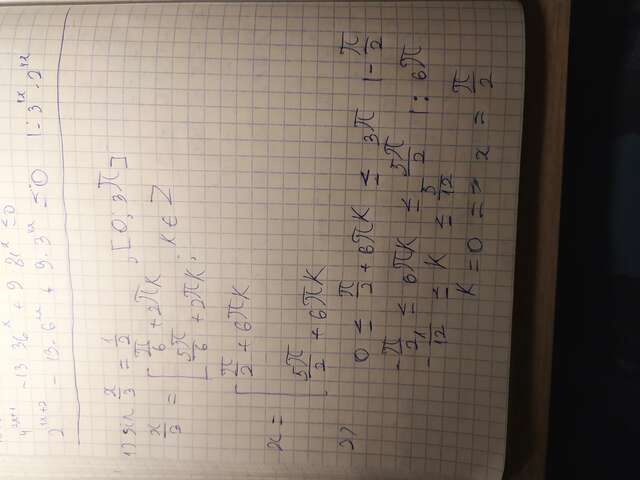 4^(2x+1) - 13 · 36^x + 9 · 81^x ≤ 0
2^(4x+2) - 13 · 6^(2x) + 9 · 3^(4x) ≤ 0 | : 3^(2x) · 2^(2x)
1) sin x/3 = 1/2 , [0; 3π]
x/3 = [ π/6 + 2πK
5π/6 + 2πK , K ∈ Z
x = [ π/2 + 6πK
5π/2 + 6πK
2) 0 ≤ π/2 + 6πK ≤ 3π | - π/2
-π/2 ≤ 6πK ≤ 5π/2 | : 6π
-1/12 ≤ K ≤ 5/12
K = 0 => x = π/2